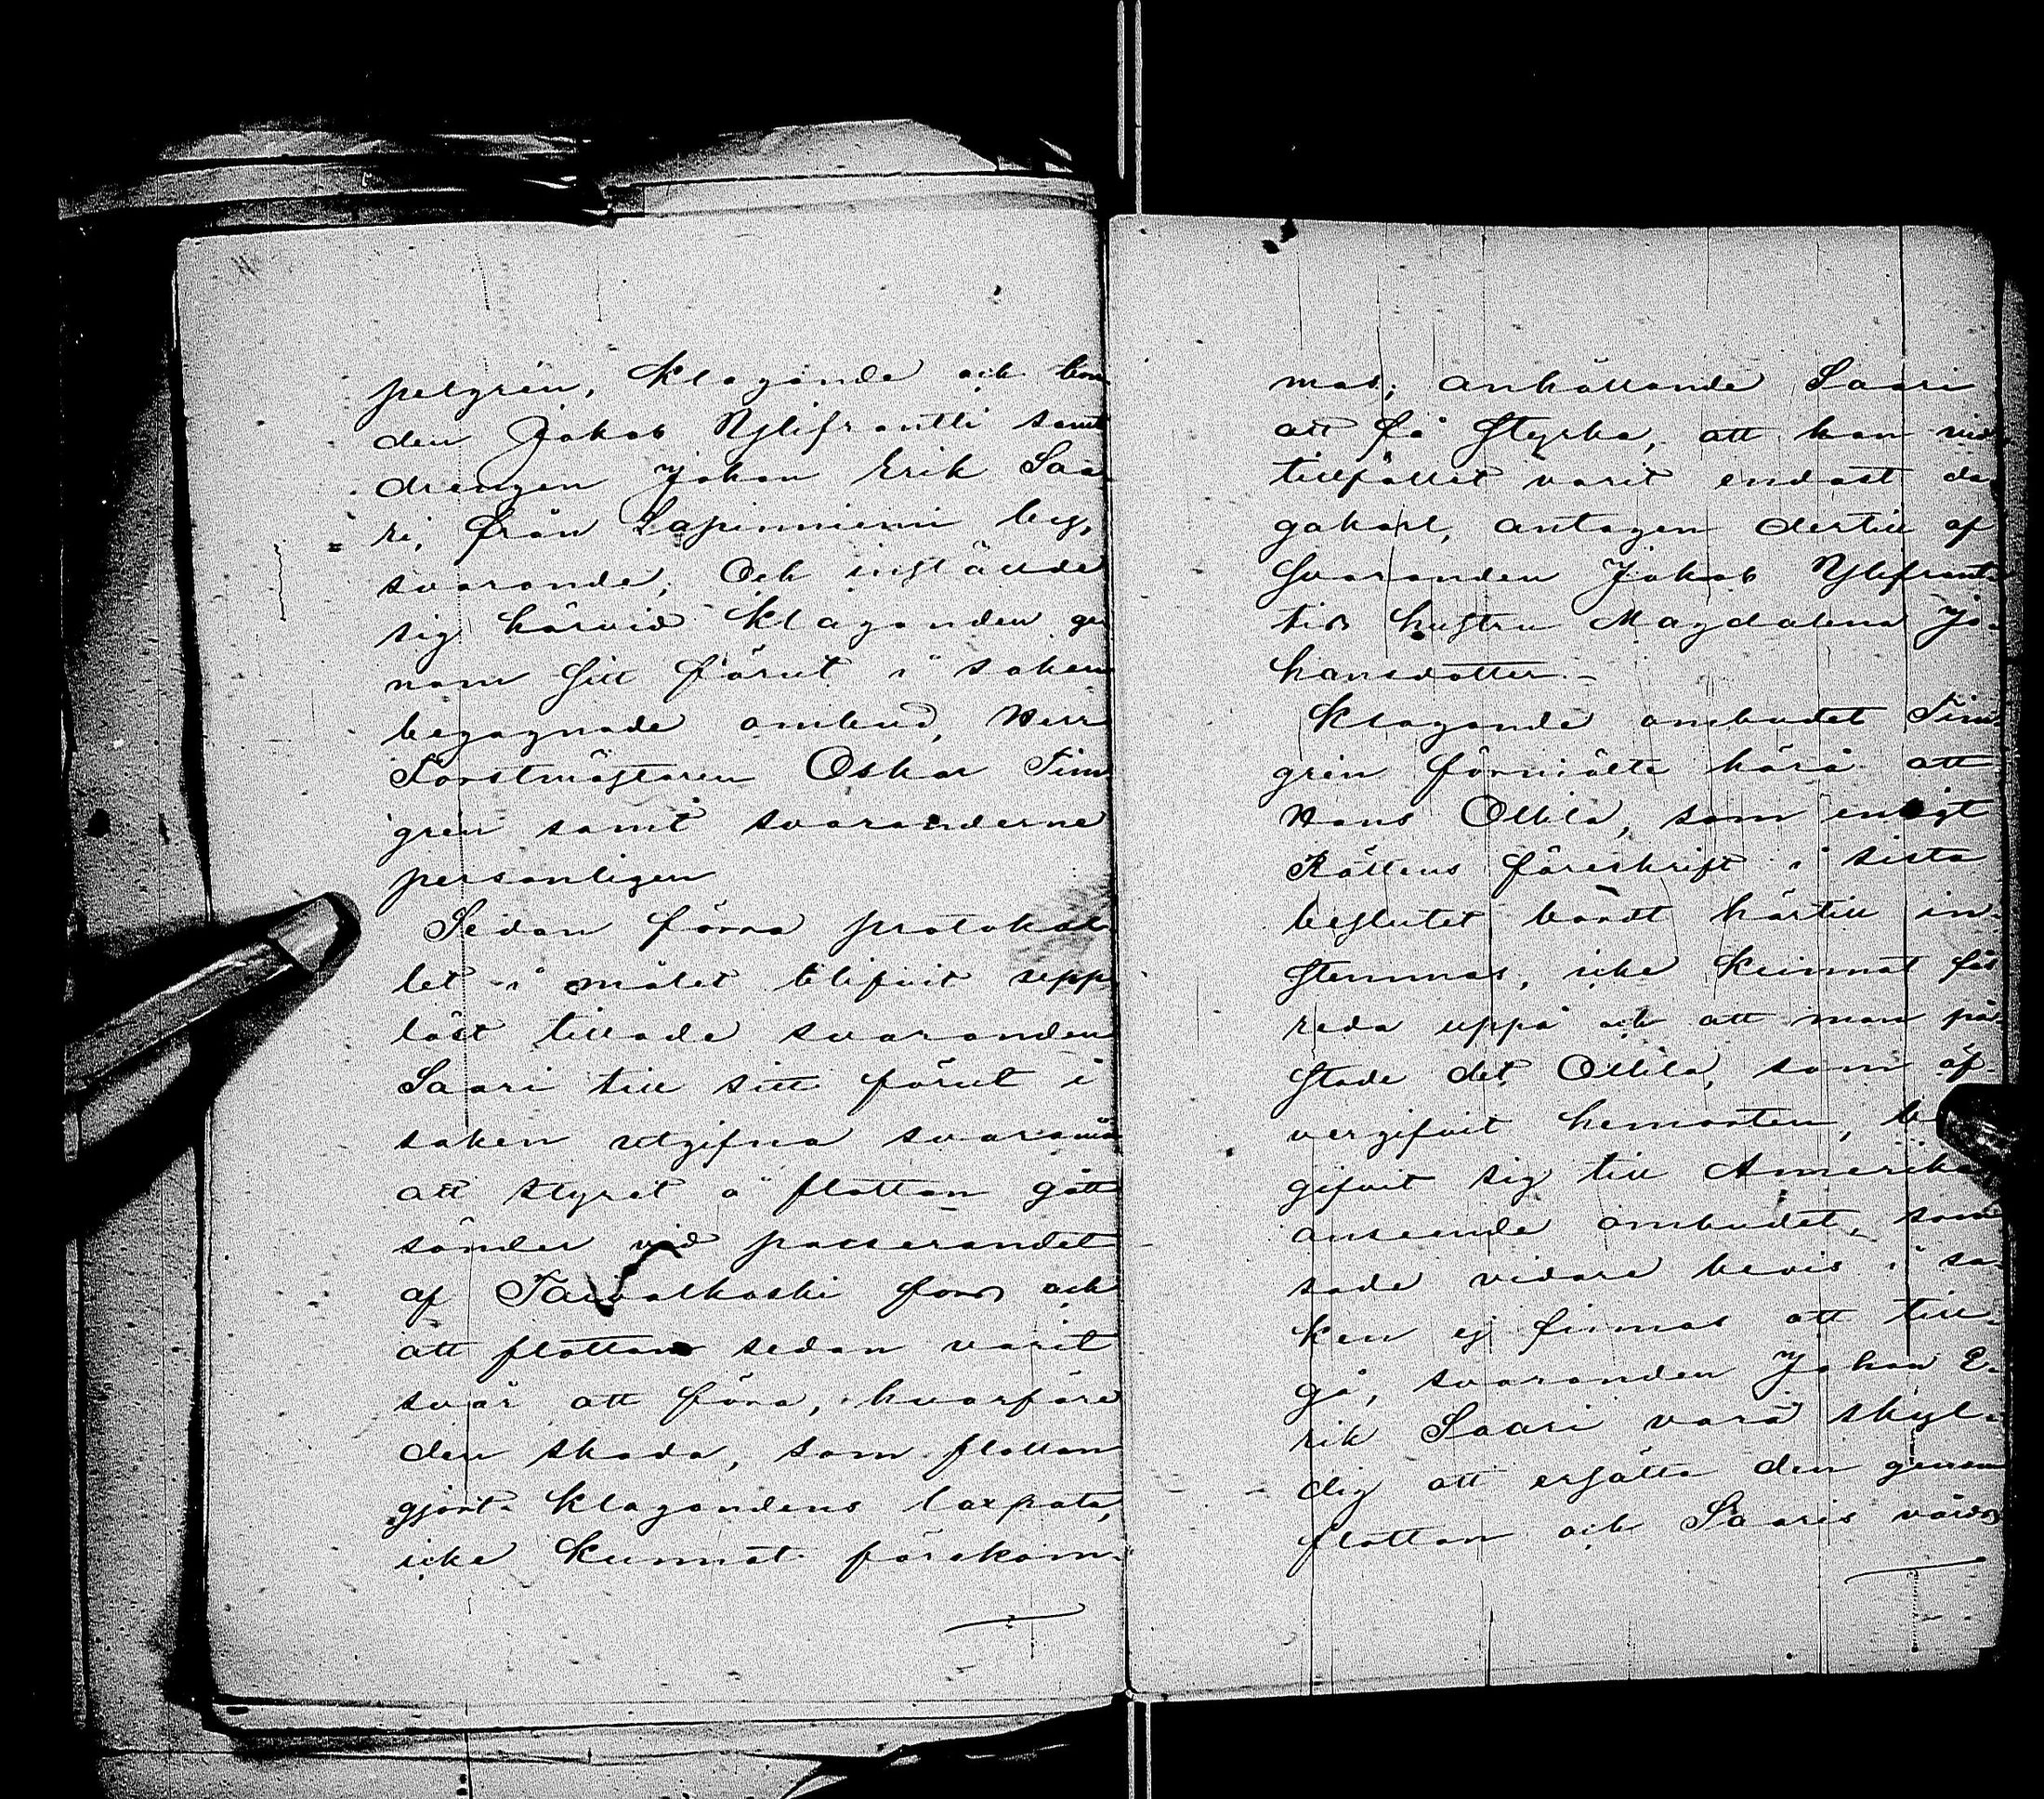 pelgrén, klagande och bon-
den Jakob Ylifrantti samt
drengen Johan Erik Saa-
ri, från Lapinniemi by,
svarande; Och instälde
sig härvid klaganden ge-
nom sitt förut i saken
begagnade ombud, Herr
Forstmästaren Oskar Tim-
gren samt svaranderne
personligen
Sedan förra protokol-
let i målet blifvit upp-
läst tillade svaranden
Saari till sitt förut i
saken utgifna svaromål
att styret å flottan gått
sönder vid passerandet
af Taivalkoski fors och
att flottan sedan varit
svår att föra, hvarföre
den skada, som flottan
gjort klagandens laxpata,
icke kunnat förekom-
mas; anhållande Saari
att få styrka, att han vid
tillfället varit endast da-
gakarl, antagen dertill af
Svaranden Jakob Ylifrant-
tis hustru Magdalena Jo-
hansdotter.-
Klagande ombudet Tim-
grén förmälte härå att
Hans Ollila, som enligt
Rättens föreskrift i sista
beslutet bordt härtill in-
stemmas, icke kunnat fås
reda uppå och att man på-
stode det Ollila, som öf-
vergifvit hemorten, be-
gifvit sig till Amerika,
anseende ombudet, som
sade vidare bevis i sa-
ken ej finnas att till-
gå, svaranden Johan E-
rik Saari vara skyl-
dig att ersätta den genom
flottan och Saaris vårds